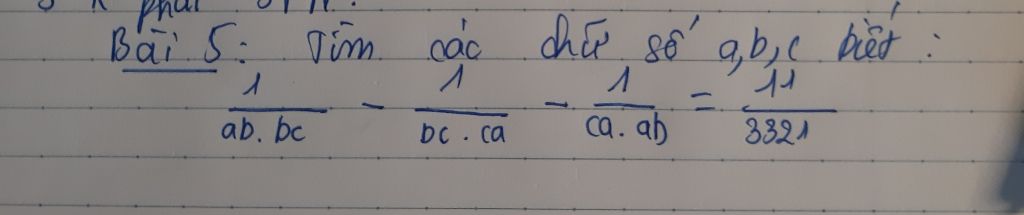 phải
Bài 5: Tìm các chữ số a,b,c biết:
1/ab.bc - 1/bc.ca - 1/ca.ab = 11/3321